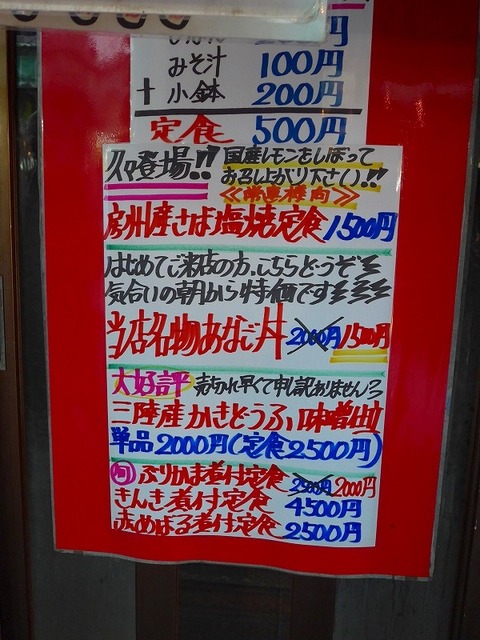 みそ汁 100円
十 小鉢 200円
定食 500円
久々登場!! 国産レモンをしぼって
お召し上がり下さい!!
≪常連様向≫
房州産さば塩焼定食 1500円
はじめてご来店の方、こちらどうぞ
気合いの朝から特価です
当店名物あなご丼 2000円 1500円
大好評 売切れ早くて申し訳ありません
三陸産かきどうふ 味噌仕
単品2000円(定食2500円)
旬 ぶりかま煮付定食 2500円 2000円
きんき煮付定食 4500円
赤めばる煮付定食 2500円